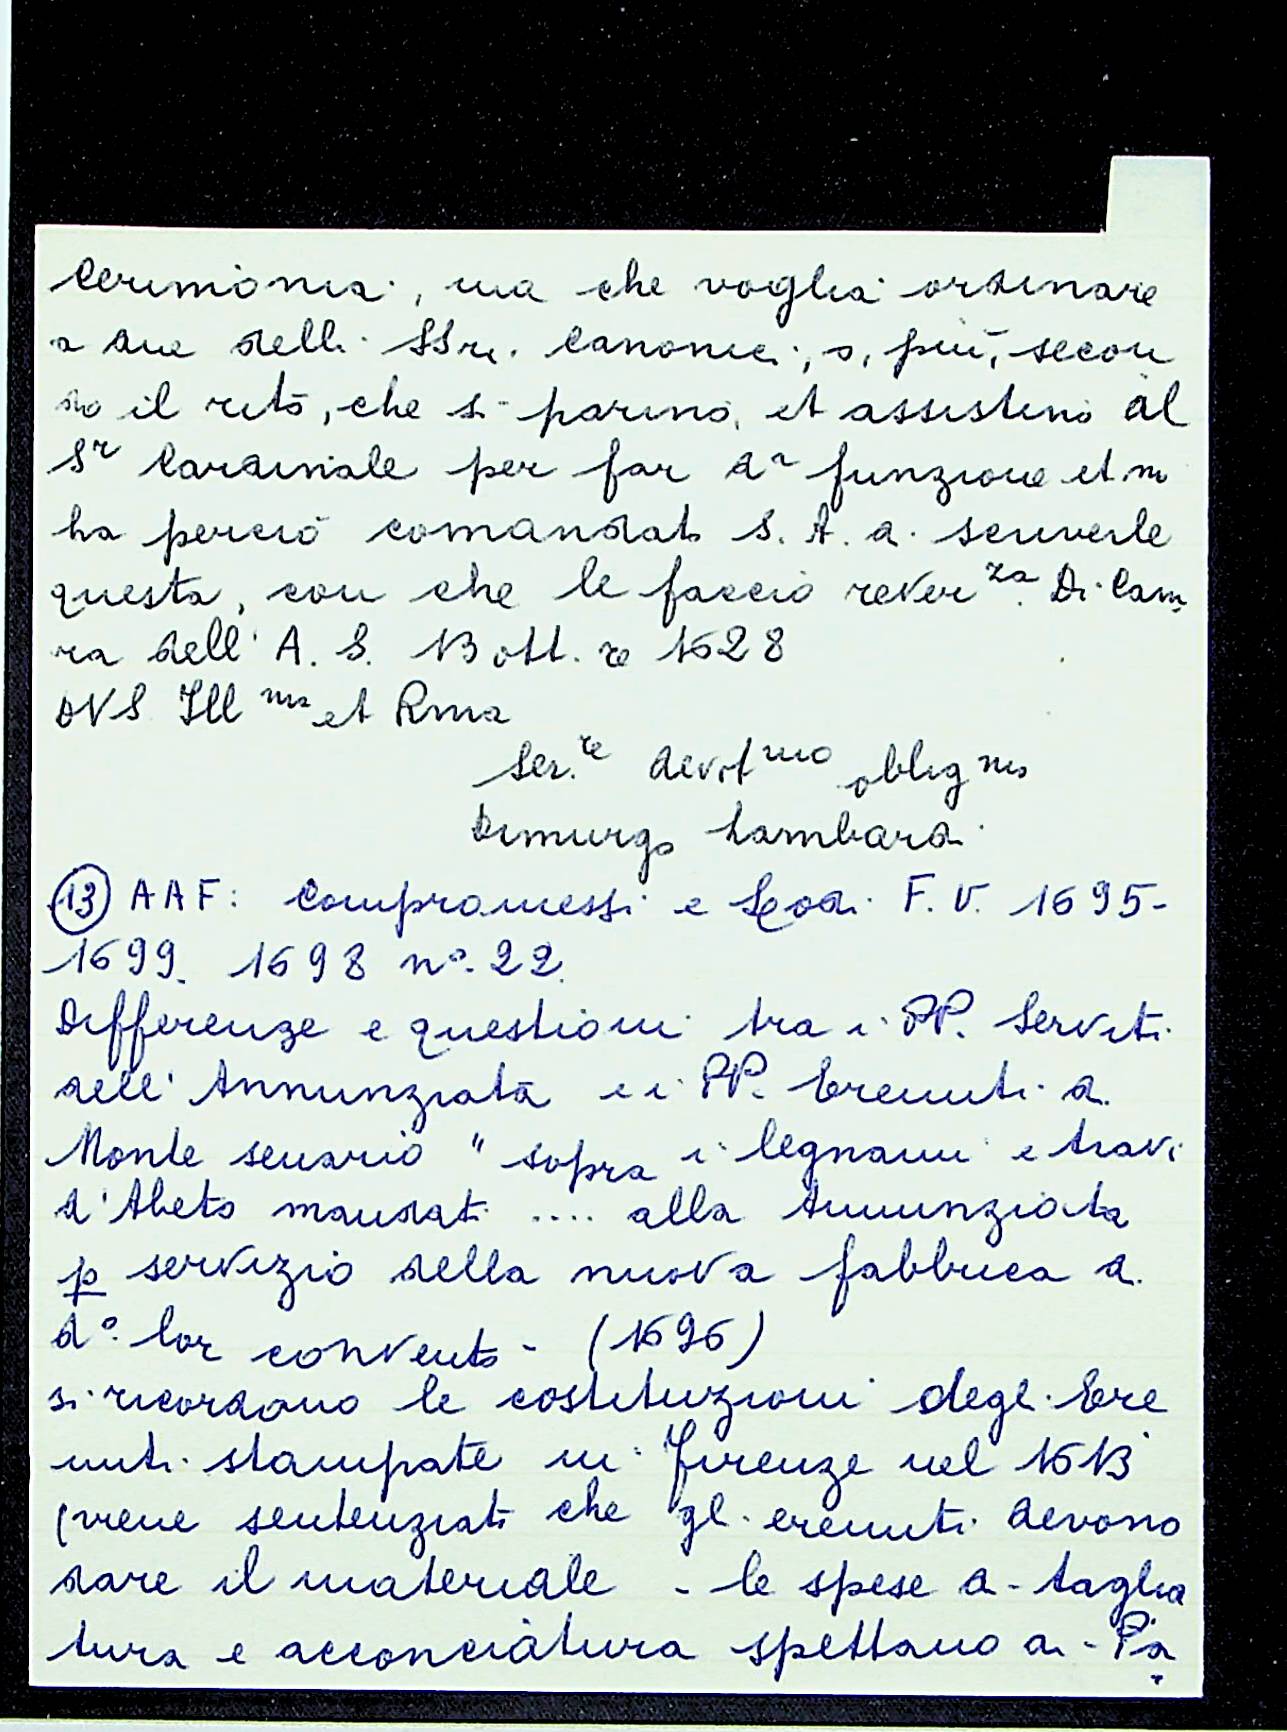 cerimonia, ma che voglia ordinare
a due delli SSri. Canonici, o, più, secon
do il rito, che si parino, et assistino al
Sr Cardinale per far da funzione et m
ha perciò comandato S. A. a scriverle
questa, con che le faccio reverza. Di Cam
ra dell' A. S. 13 ott.re 1628
DVS Illma et Rma
Ser.re devotmo obligmo
Lambard
(13) AAF: Compromessi e Lodi F. V. 1695-
1699. 1698 n°. 22.
Differenze e questioni tra i PP. Serviti
dell' Annunziata e i PP. Eremiti di
Monte senario "sopra i legnami e travi
d'Abeto mandati .... alla Annunziata
p servizio della nuova fabbrica di
do. lor convento - (1696)
si ricordano le costituzioni degli Ere
miti stampate in Firenze nel 1613
(viene sentenziato che gli eremiti devono
dare il materiale - le spese di taglia
tura e acconciatura spettano ai Pa